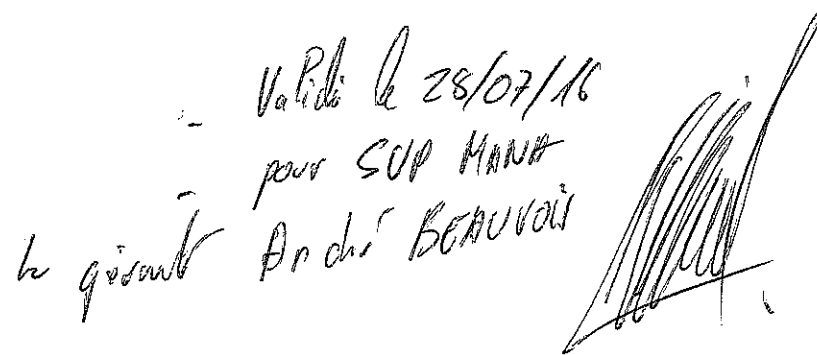 - Validé le 28/07/16
- pour SUP MANA
le gérant André BEAUVOIS